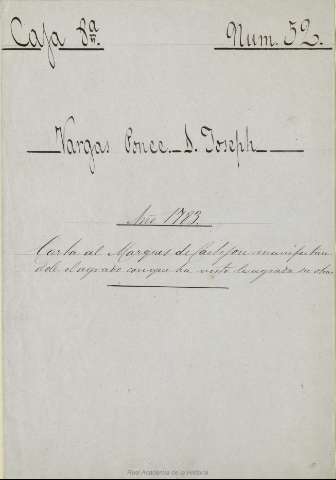 Caja 8ª. Num. 52.
Vargas Ponce. D. Joseph
Año 1783.
Carta al Marques de manifestan
dole el agrado con que ha visto su obra
Real Academia de la Historia